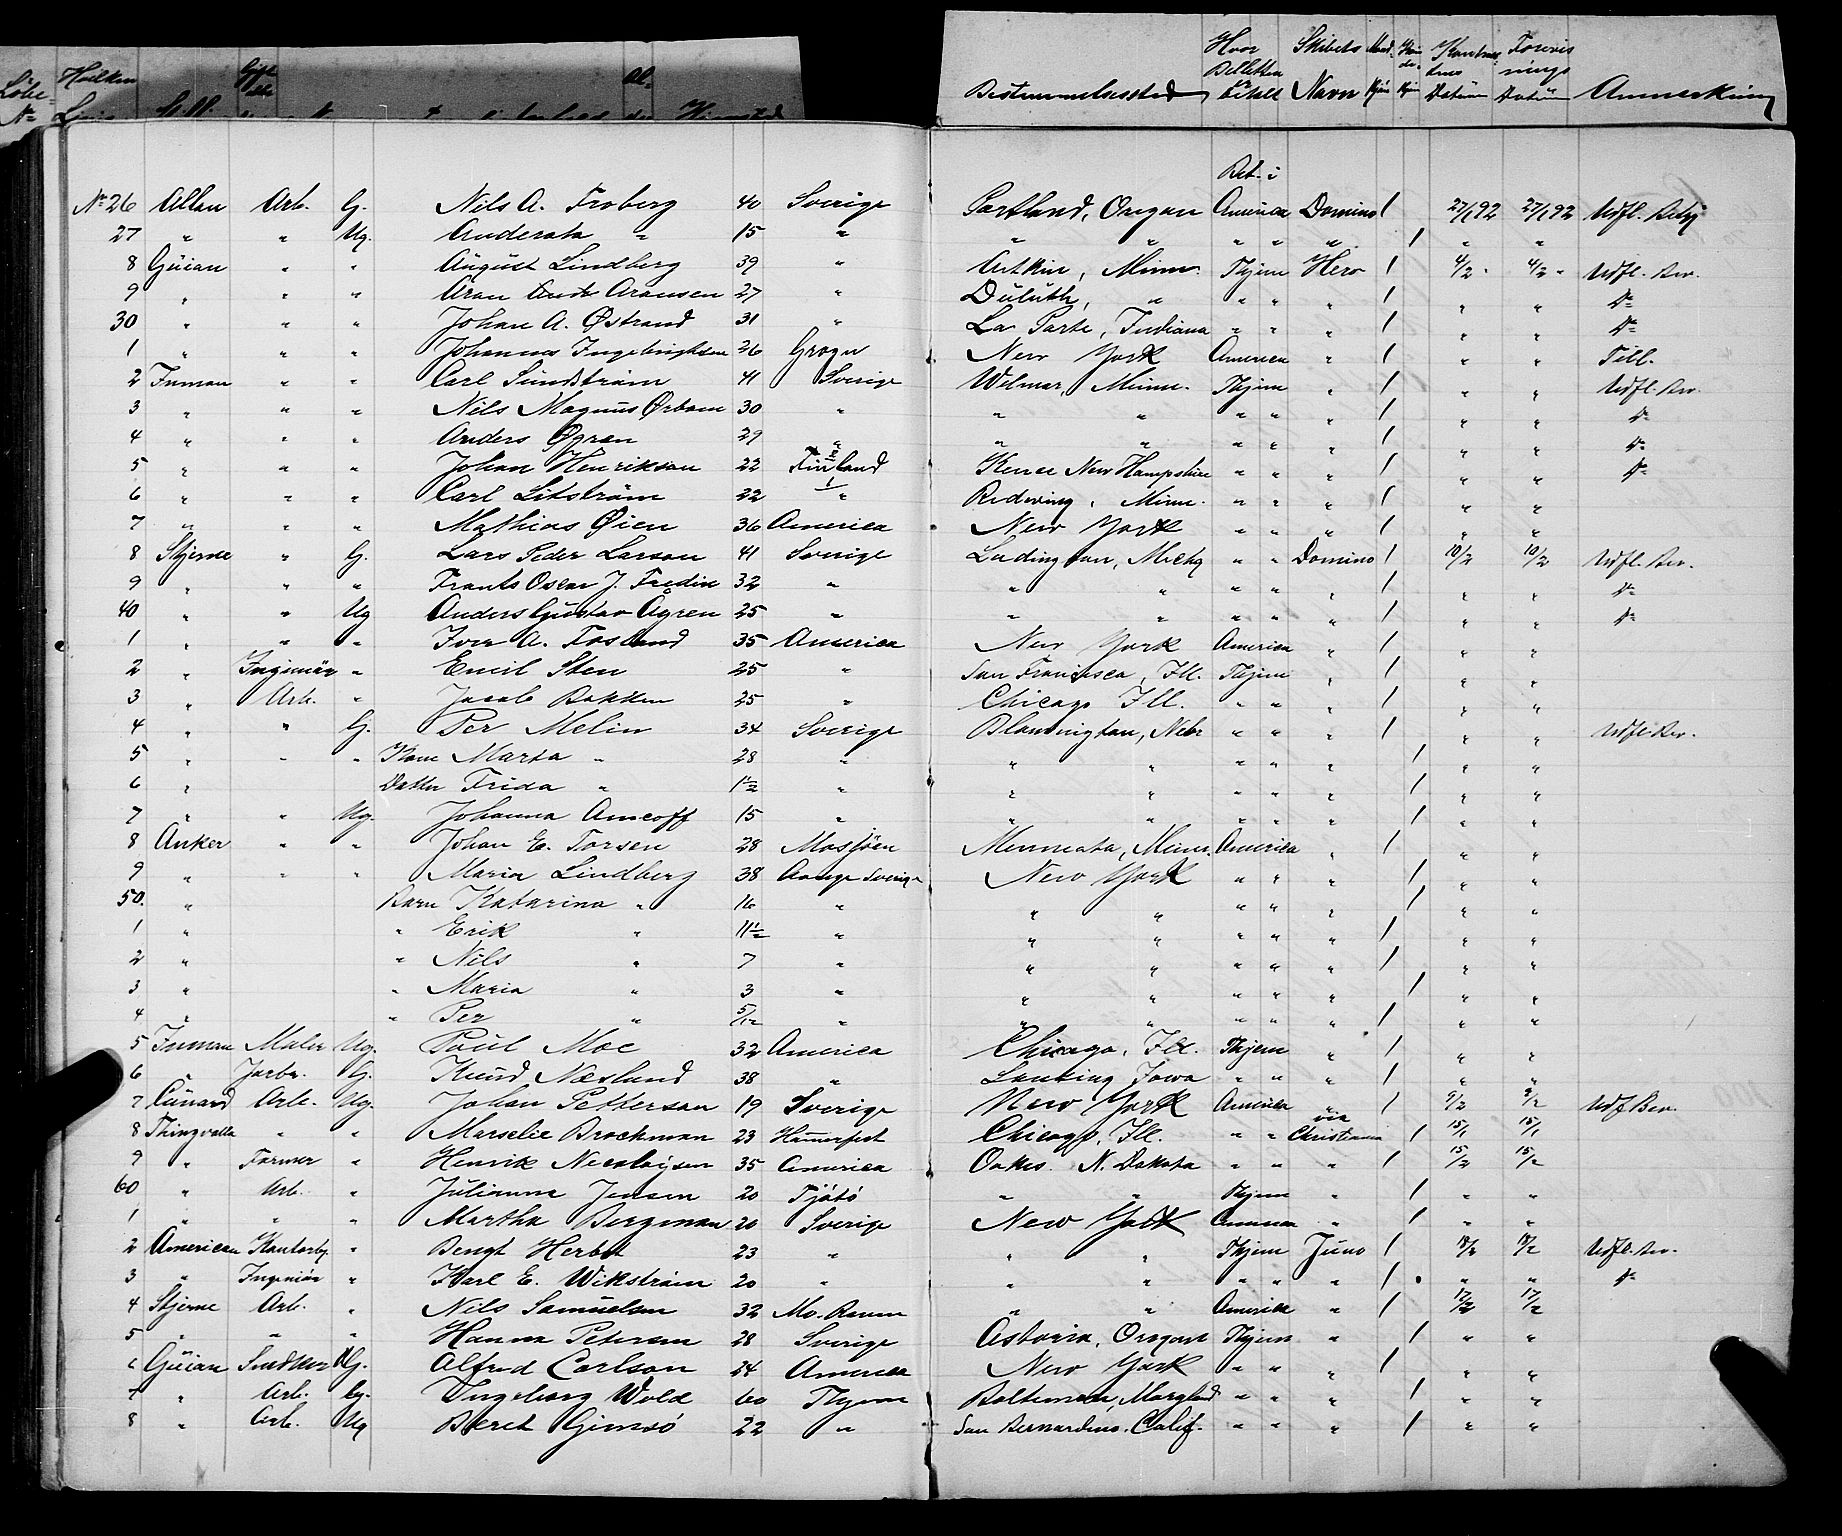 Löbe- Hvilken Al-
No Linie Still. Hjemsted
Hvor Skibets Mand- Kvin- Kontrak- Forevis-
Billetten de- tens nings
Bestemmelsessted er betalt Navn Kjön Kjön Datum Datum Anmerkning
Bet. i
No 26 Allan Arb. G. Nils A. Froberg 40 Sverige Portland, Oregon America Domino 1 27/1 92 27/1 92 Udfl. Betg
27 " " Ug. " 15 " " " " " " 1 " "
8 Guion " " August Lindberg 39 " Aitkin, Minn. Thjem Hero 1 4/2 " 4/2 " Udfl. Bev.
9 " " " Aron Aronsen 27 " Duluth, " " " " 1 " " do
30 " " " Johan A. Østrand 31 " La Porte, Indiana " " " 1 " " do
1 " " " Johannes Ingebrigtsen 26 New York America " 1 " " Till.
2 Inman " " Carl Sundström 41 Sverige Wilmar, Minn. Thjem " 1 " " Udfl. Bev.
3 " " " Nils Magnus Ørbom 30 " " " " " " 1 " " do
4 " " " Anders Øgren 29 " " " " " " 1 " " do
5 " " " Johan Henrikson 22 Finland Keene New Hampshire " " " 1 " " do
6 " " " Carl Litström 22 " Minn. " " " 1 " "
7 " " " Mathias Øien 36 America New York " " " 1 " "
8 Stjerne " G. Lars Peder Larson 41 Sverige Ludington, Michg " " Domino 1 10/2 10/2 Udfl. Bev.
9 " " " Frants Oscar J. Fredin 32 " " " " " " 1 " " do
40 " " Ug Anders Gustav Ågren 25 " " " " " " 1 " " do
1 " " " Iver A. Fosland 35 America New York America " 1 " "
2 " Ingeniör " Emil Sten 25 " San Francisco, Ill. Thjem " 1 " "
3 " Arb. " Jacob Bakken 25 " Chicago Ill. " " " 1 " "
4 " " G. Per Melin 34 Sverige Bloomington, Nebr " " " 1 " " Udfl. Bev.
5 " " " Kone Marta " 28 " " " " " " 1 " "
6 " Datter Frida " 1½ " " " " " " 1 " "
7 " " Ug. Johanna Ameoff 15 " " " " " " 1 " "
8 Anker " " Johan E. Torsen 28 Mosjöen Minneota, Minn. America " 1 " "
9 " " " Maria Lindberg 38 Sverige New York " " " 1 " "
50. " Barn Katarina " 16 " " " " " " 1 " "
1 " " Erik " 11½ " " " " " " 1 " "
2 " " Nils " 7 " " " " " " 1 " "
3 " " Maria " 3 " " " " " " 1 " "
4 " " Per " 5/12 " " " " " " 1 " "
5 Inman Maler Ug. Paul Moe 32 America Chicago, Ill. Thjem " 1 " "
6 " Jorbr. G. Knud Næsland 38 " Iowa " " " 1 " "
7 Cunard Arb. Ug. Johan Petterson 19 Sverige New York America " 1 9/2 9/2 Udf Bev.
8 Thingvalla " " Marselie Brockman 23 Hammerfest Chicago, Ill. " " via Christiania 1 15/1 15/1
9 " Farmer " Henrik Necolaysen 35 America Oakes. N. Dakota " " " 1 15/2 15/2
60 " Arb. " Julianna Jensen 20 Tjötö " " Thjem " 1 " "
1 " " " Martha Bergman 20 Sverige New York America " 1 " "
2 American Kontorbj. " Bengt Herbst 23 " " " Thjem Juno 1 18/2 18/2 Udfl. Bev.
3 " Ingeniör " Karl E. Wikström 20 " " " " " " 1 " " do
4 Stjerne Arb. " Nils Samuelsen 32 Mo. Ranen " " America " 1 17/2 17/2
5 " " " Hanna Petersen 28 Sverige Astoria, Oregon Thjem " 1 " "
6 Guion Snedker G. Alfred Carlson 54 America New York " " " 1 " "
7 " Arb. G. Ingeborg Wold 60 Thjem Baltimore, Maryland " " " 1 " "
8 " Arb. Ug Beret Gimsö 22 " San Bernardino. Calif. " " " 1 " "